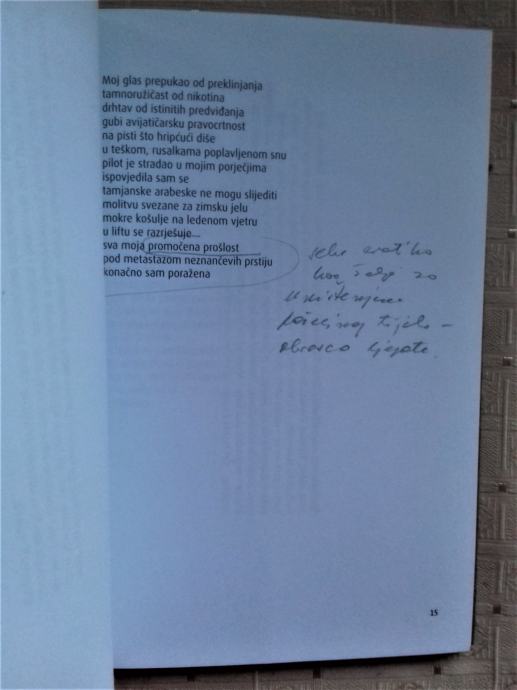 Moj glas prepukao od preklinjanja
tamnoružičast od nikotina
drhtav od istinitih predviđanja
gubi avijatičarsku pravocrtnost
na pisti što hripćući diše
u teškom, rusalkama poplavljenom snu
pilot je stradao u mojim porječjima
ispovjedila sam se
tamjanske arabeske ne mogu slijediti
molitvu svezane za zimsku jelu
mokre košulje na ledenom vjetru
u liftu se razrješuje...
sva moja promočena prošlost
pod metastazom neznančevih prstiju
konačno sam poražena
kao za
tijela -
obrasca ljepote.
15